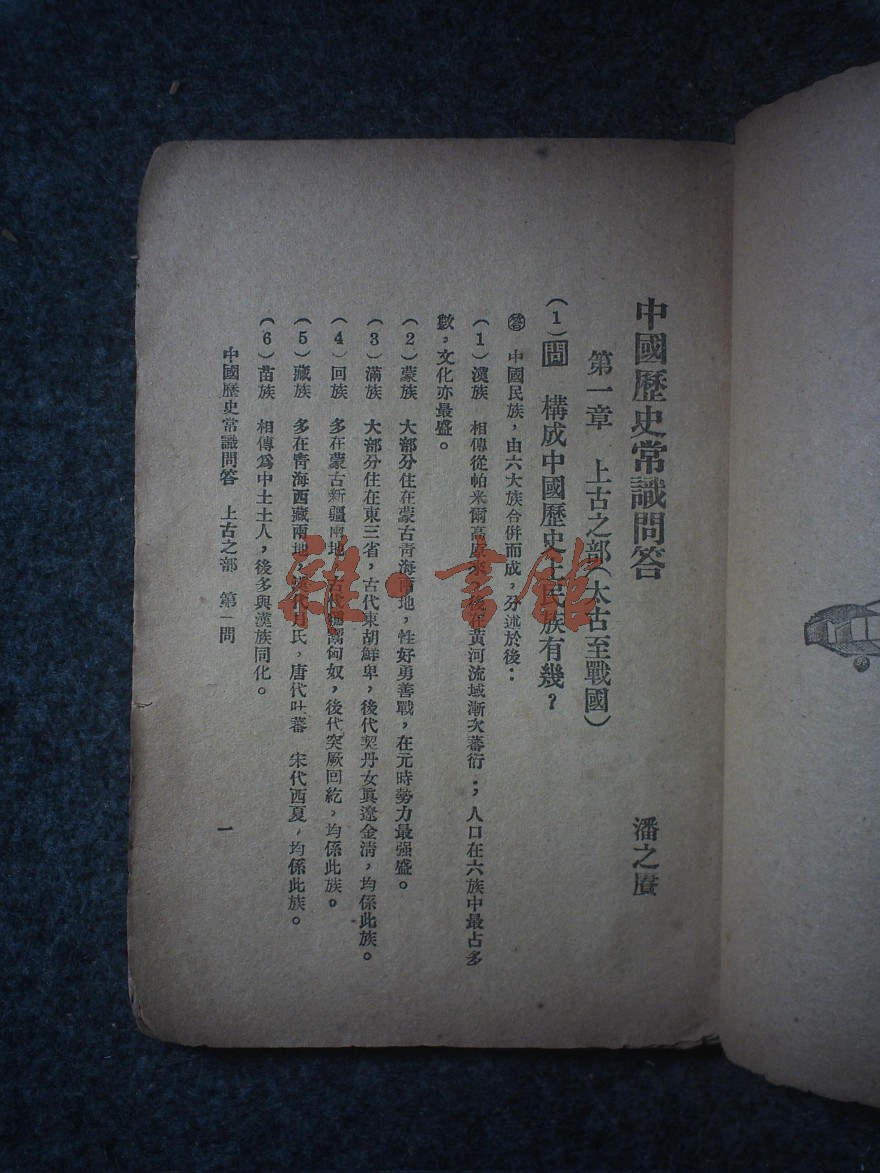 中國歷史常識問答
潘之賡
第一章　上古之部（太古至戰國）
（1）問　構成中國歷史上民族有幾？
答　中國民族，由六大族合併而成，分述於後：
（1）漢族　相傳從帕米爾高原來，後在黃河流域漸次蕃衍；人口在六族中最占多
數，文化亦最盛。
（2）蒙族　大部分住在蒙古青海兩地，性好勇善戰，在元時勢力最强盛。
（3）滿族　大部分住在東三省，古代東胡鮮卑，後代契丹女眞遼金淸，均係此族。
（4）回族　多在蒙古新疆兩地，古代匈奴，後代突厥回紇，均係此族。
（5）藏族　多在靑海西藏兩地，漢代月氏，唐代吐蕃　宋代西夏，均係此族。
（6）苗族　相傳爲中土土人，後多與漢族同化。
中國歷史常識問答　上古之部　第一問
一
雜·書館